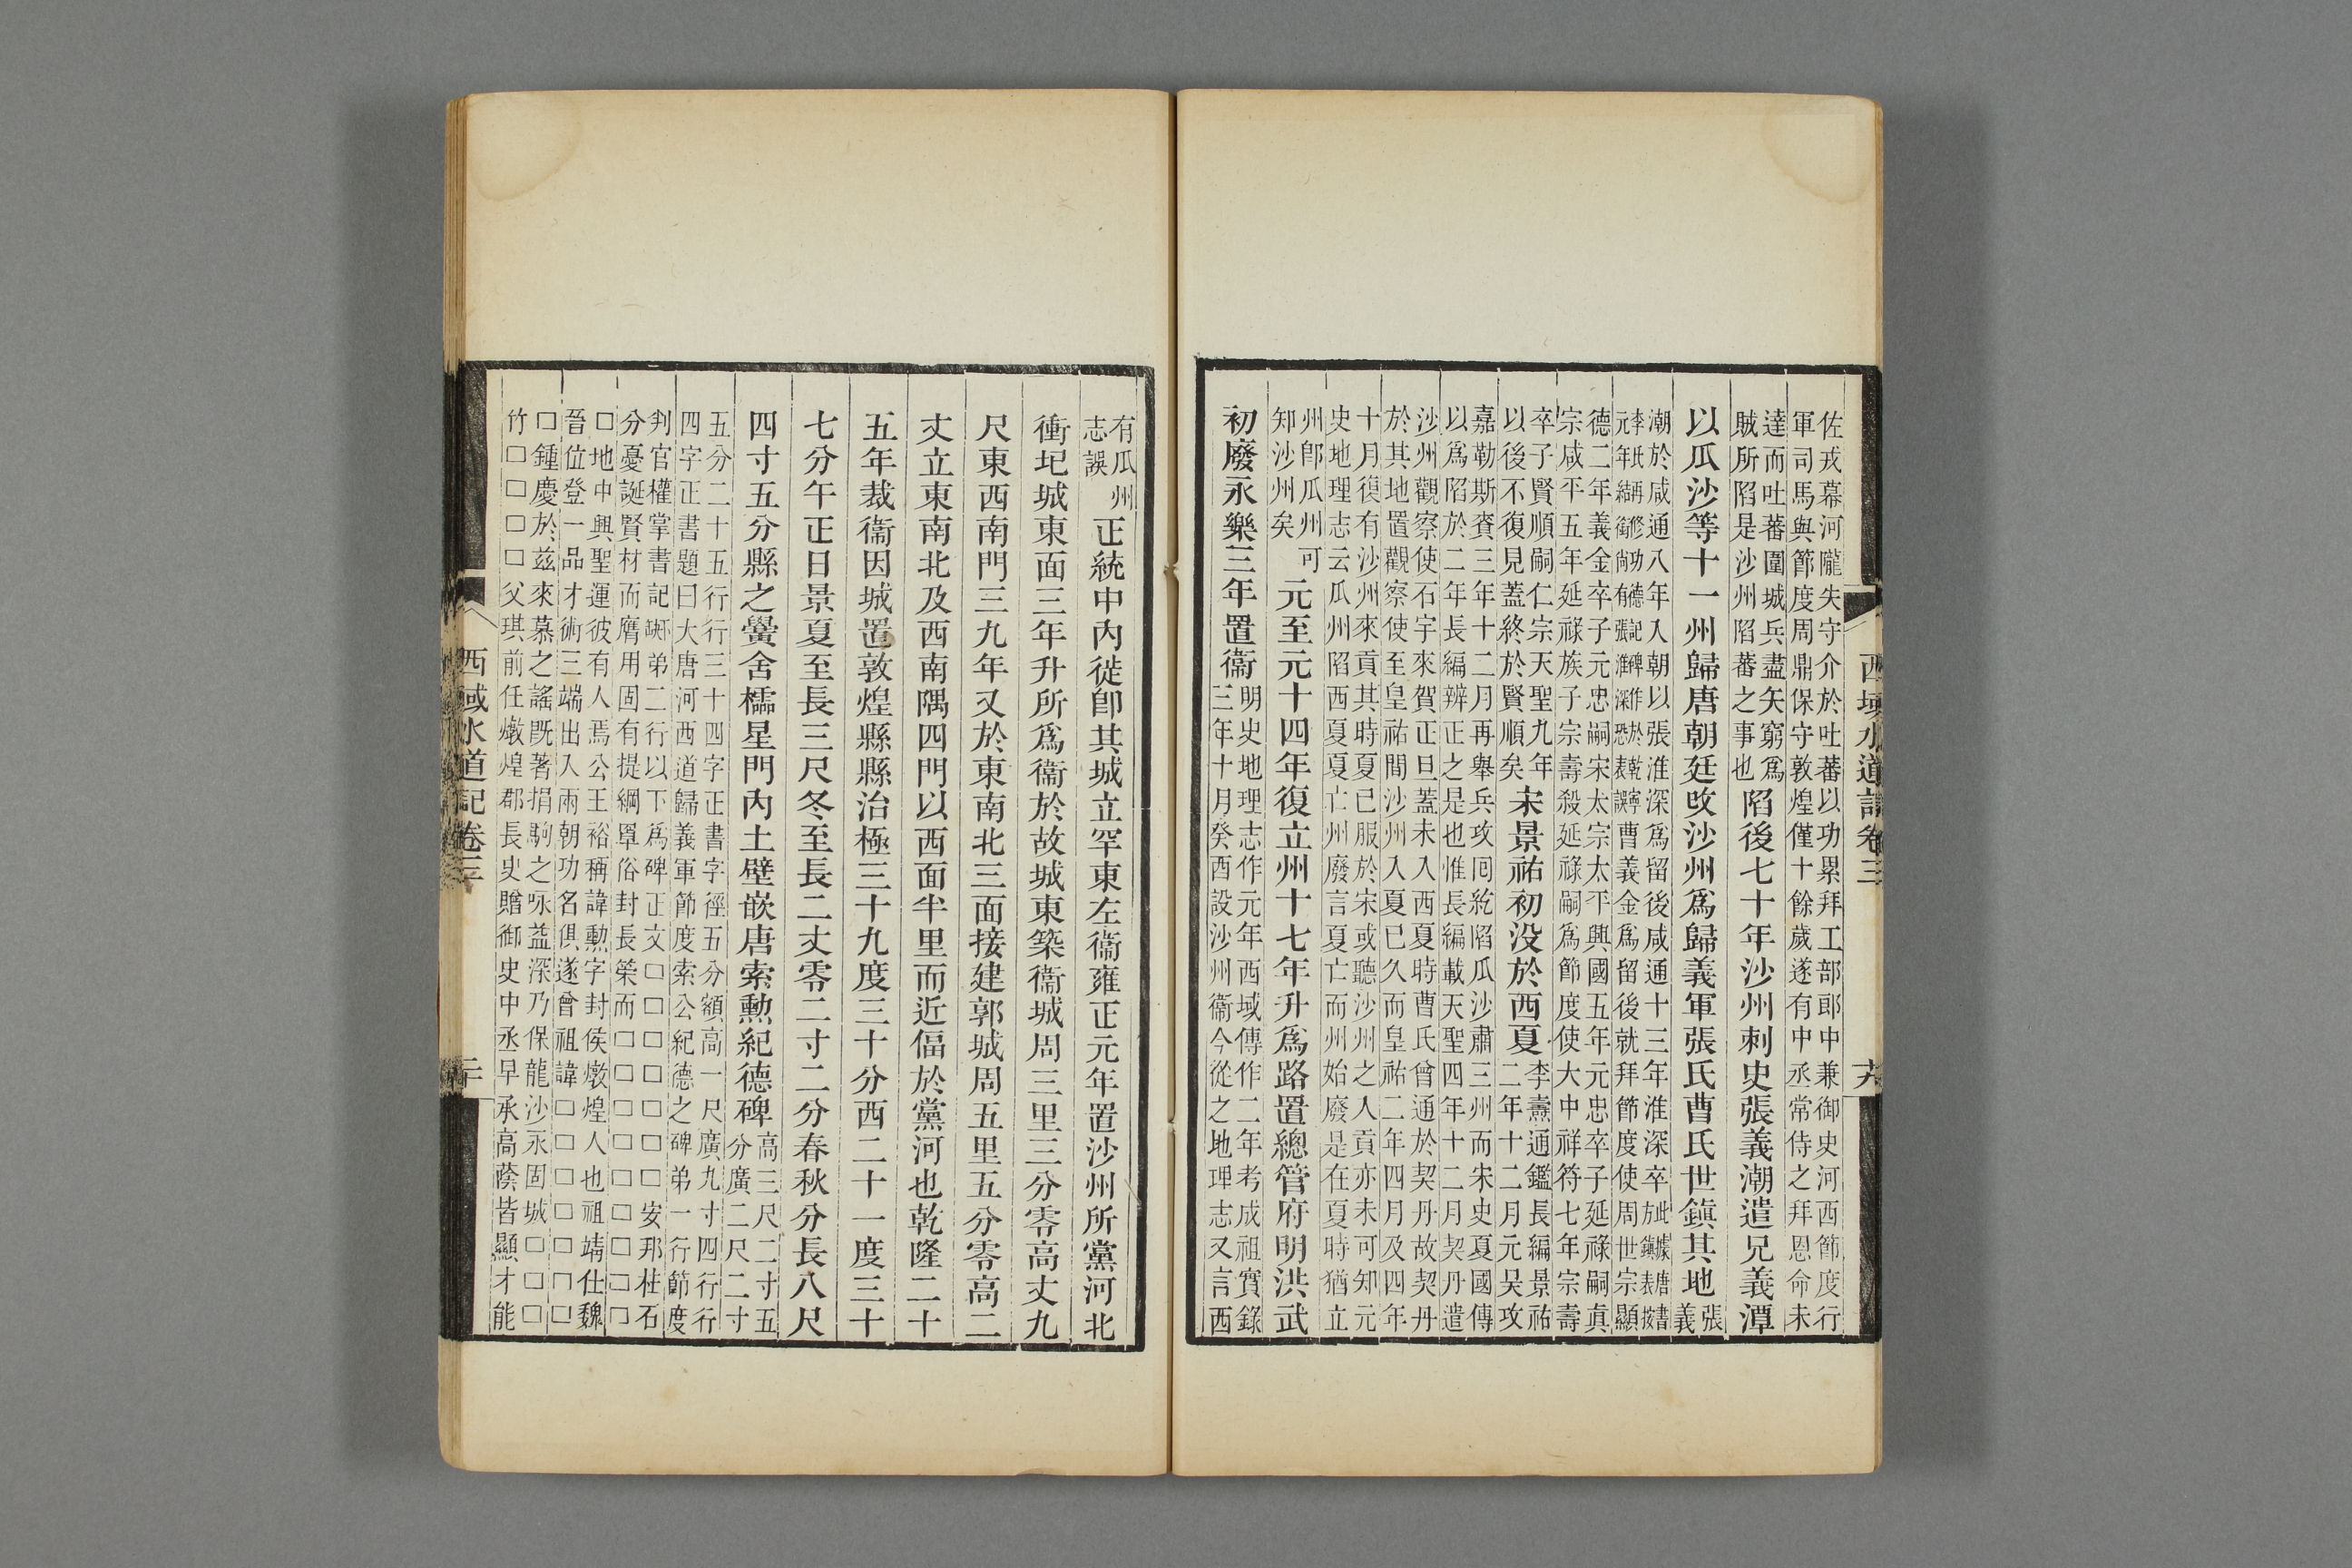 佐戎幕河隴失守介於吐蕃以功累拜工部郎中兼御史河西節度行
軍司馬與節度周鼎保守敦煌僅十餘歲遂有中丞常侍之拜恩命未
達而吐蕃圍城兵盡矢窮爲
賊所陷是沙州陷蕃之事也
陷後七十年沙州刺史張義潮遣兄義潭
以瓜沙等十一州歸唐朝廷改沙州爲歸義軍張氏曹氏世鎭其地
張
義
潮於咸通八年入朝以張淮深爲留後咸通十三年淮深卒
曹義金爲留後就拜節度使周世宗顯
德二年義金卒子元忠嗣宋太宗太平興國五年元忠卒子延祿嗣眞
宗咸平五年延祿族子宗壽殺延祿嗣爲節度使大中祥符七年宗壽
卒子賢順嗣仁宗天聖九年
以後不復見蓋終於賢順矣
宋景祐初没於西夏
李燾通鑑長編景祐
二年十二月元吴攻
嘉勒斯賚三年十二月再舉兵攻囘紇陷瓜沙肅三州而宋史夏國傳
以爲陷於二年長編辨正之是也惟長編載天聖四年十二月契丹遣
沙州觀察使石宇來賀正旦蓋未入西夏時曹氏曾通於契丹故契丹
於其地置觀察使至皇祐間沙州入夏已久而皇祐二年四月及四年
十月復有沙州來貢其時夏已服於宋或聽沙州之人貢亦未可知元
史地理志云瓜州陷西夏夏亡州廢言夏亡而州始廢是在夏時猶立
州卽瓜州可
知沙州矣
元至元十四年復立州十七年升爲路置總管府明洪武
初廢永樂三年置衞
明史地理志作元年西域傳作二年考成祖實錄
三年十月癸酉設沙州衞今從之地理志又言西
西域水道記卷三
有瓜州
志誤
正統中內徙卽其城立罕東左衞雍正元年置沙州所黨河北
衝圮城東面三年升所爲衞於故城東築衞城周三里三分零高丈九
尺東西南門三九年又於東南北三面接建郭城周五里五分零高二
丈立東南北及西南隅四門以西面半里而近偪於黨河也乾隆二十
五年裁衞因城置敦煌縣縣治極三十九度三十分西二十一度三十
七分午正日景夏至長三尺冬至長二丈零二寸二分春秋分長八尺
四寸五分縣之黌舍櫺星門內土壁嵌唐索勲紀德碑
高三尺二寸五
分廣二尺二寸
五分二十五行行三十四字正書字徑五分額高一尺廣九寸四行行
四字正書題曰大唐河西道歸義軍節度索公紀德之碑弟一行節度
判官權掌書記 弟二行以下爲碑正文□□□□□□□安邦柱石
分憂誕賢材而膺用固有提綱罩俗封長築而□□□□□□□□□
□地中興聖運彼有人焉公王裕稱諱勲字封侯燉煌人也祖靖仕魏
晉位登一品才術三端出入兩朝功名俱遂曾祖諱□□□□□□□
□鍾慶於茲來慕之謠旣著捐駒之咏益深乃保龍沙永固城□□□
竹□□□□父琪前任燉煌郡長史贈御史中丞早承高蔭皆顯才能
西域水道記卷三